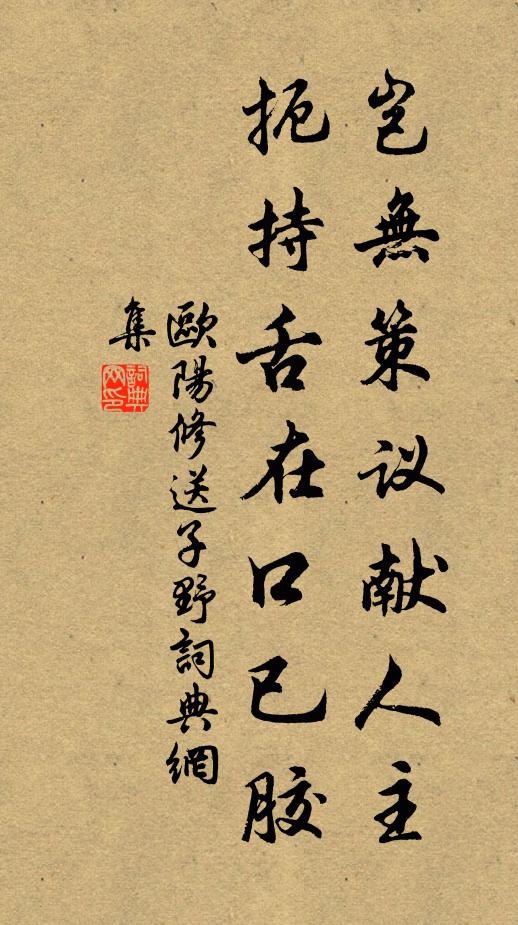 豈無策议献人主
扼持舌在口已胶
歐陽修送子野詞典網
集
詞典
网印